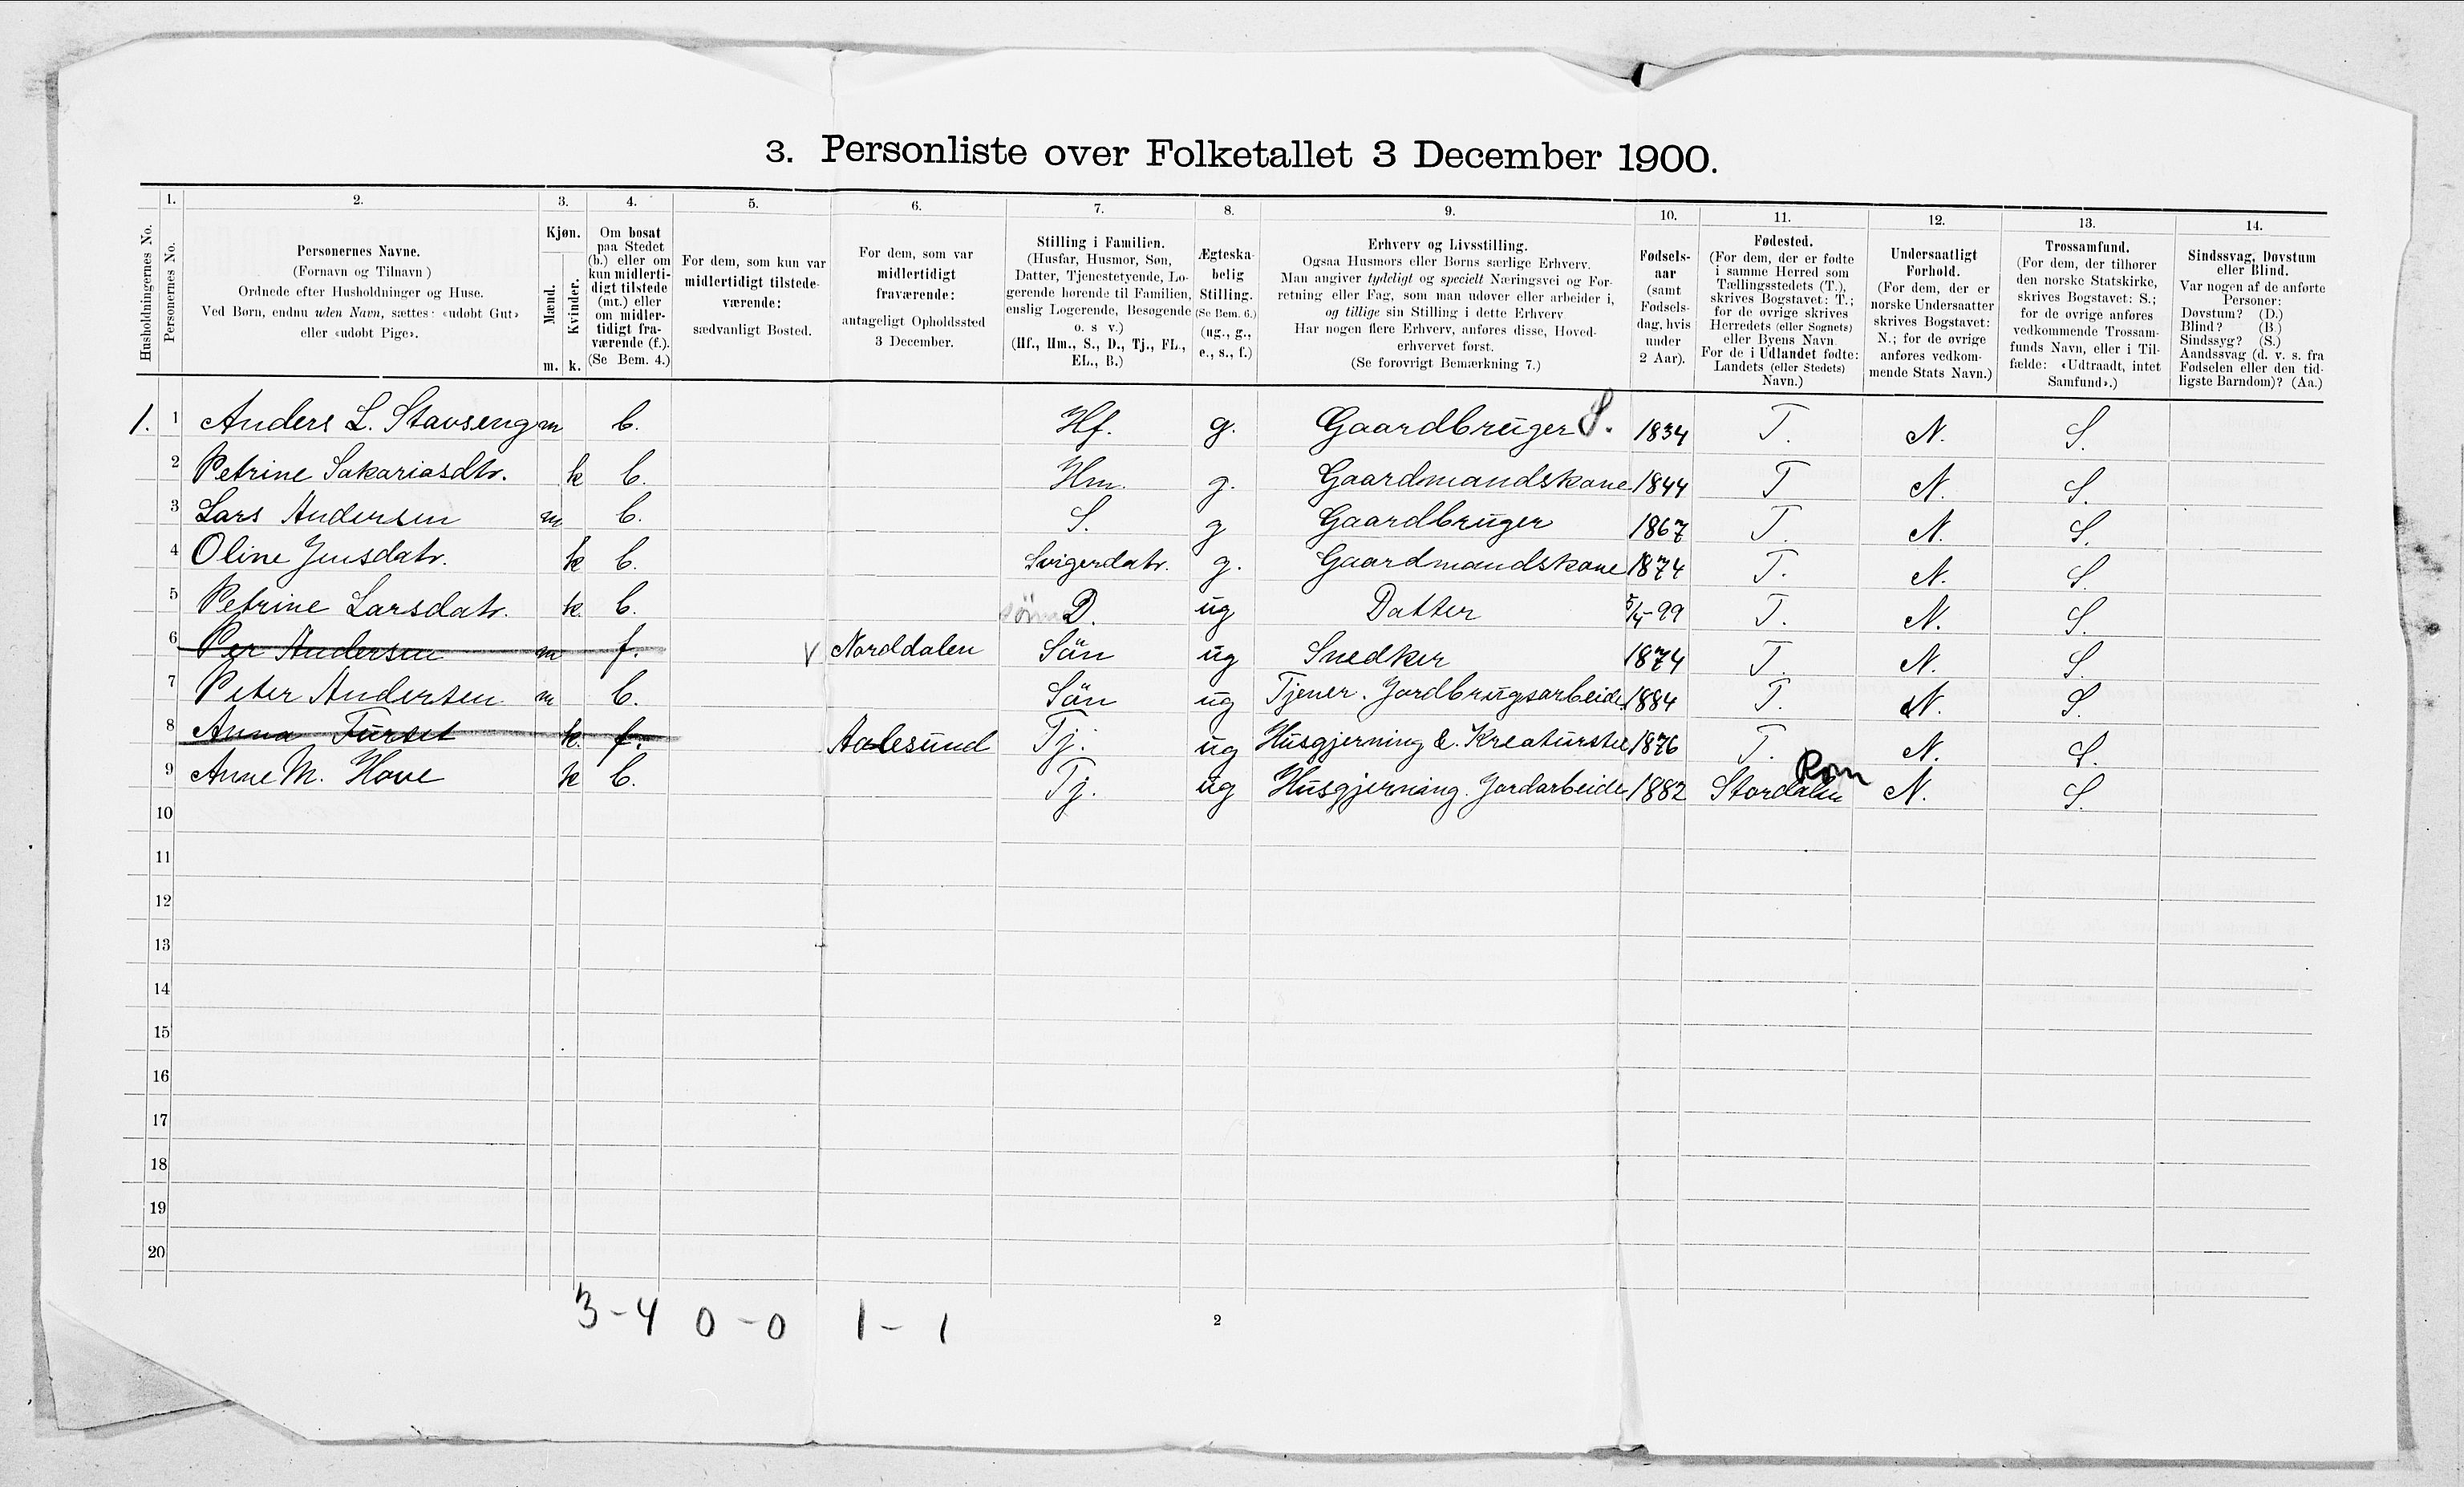 3. Personliste over Folketallet 3 December 1900.
1. 2. 3. 4. 5. 6. 7. 8. 9. 10. 11. 12. 13. 14.
Husholdningernes No.
Personernes No.
Personernes Navne.
(Fornavn og Tilnavn)
Ordnede efter Husholdninger og Huse.
Ved Børn, endnu uden Navn, sættes: «udøbt Gut»
eller «udøbt Pige».
Kjøn.
Mænd.
Kvinder.
m. k.
Om bosat
paa Stedet
(b.) eller om
kun midlerti-
digt tilstede
(mt.) eller
om midler-
tidigt fra-
værende (f.).
(Se Bem. 4.)
For dem, som kun var
midlertidigt tilstede-
værende:
sædvanligt Bosted.
For dem, som var
midlertidigt
fraværende:
antageligt Opholdssted
3 December.
Stilling i Familien.
(Husfar, Husmor, Søn,
Datter, Tjenestetyende, Lo-
gerende hørende til Familien,
enslig Logerende, Besøgende
o. s v.)
(Hf., Hm., S., D., Tj., FL.,
EL., B.)
Ægteska-
belig
Stilling.
(Se Bem. 6.)
(ug., g.,
e., s., f.)
Erhverv og Livsstilling.
Ogsaa Husmors eller Børns særlige Erhverv.
Man angiver tydeligt og specielt Næringsvei og For-
retning eller Fag, som man udøver eller arbeider i,
og tillige sin Stilling i dette Erhverv
Har nogen flere Erhverv, anføres disse, Hoved-
erhvervet først.
(Se forøvrigt Bemærkning 7.)
Fødsels-
aar
(samt
Fødsels-
dag, hvis
under
2 Aar).
Fødested.
(For dem, der er fødte
i samme Herred som
Tællingsstedets (T.),
skrives Bogstavet: T.;
for de øvrige skrives
Herredets (eller Sognets)
eller Byens Navn
For de i Udlandet fødte:
Landets (eller Stedets)
Navn.)
Undersaatligt
Forhold.
(For dem, der er
norske Undersaatter
skrives Bogstavet:
N.; for de øvrige
anføres vedkom-
mende Stats Navn.)
Trossamfund.
(For dem, der tilhører
den norske Statskirke,
skrives Bogstavet: S.;
for de øvrige anføres
vedkommende Trossam-
funds Navn, eller i Til-
fælde: «Udtraadt, intet
Samfund».)
Sindssvag, Døvstum
eller Blind.
Var nogen af de anførte
Personer:
Døvstum? (D.)
Blind? (B.)
Sindssyg? (S.)
Aandssvag (d. v. s. fra
Fødselen eller den tid-
ligste Barndom)? (Aa.)
1. 1 Anders L. Stavseng m b. Hf. g. Gaardbruger S. 1834 T. N. S.
2 Petrine Sakariasdtr. k b. Hm. g. Gaardmandskone 1844 T N. S.
3 Lars Andersen m b. S. g Gaardbruger 1867 T. N. S.
4 Oline Jensdatr. k b. Svigerdatr. g. Gaardmandskone 1874 T. N. S
5 Petrine Larsdatr. k. b. D. ug Datter 5/4-99 T. N. S.
6 Per Andersen m f. v Norddalen Sön ug Snedker 1874 T. N. S.
7 Peter Andersen m b. Sön ug Tjener. Jordbrugsarbeide 1884 T. N. S.
8 Anna Furset k. f. Aalesund Tj. ug Husgjerning & Kreaturstel 1876 T. N. S.
Rom
9 Anne M. Hove k b. Tj. ug Husgjerning. Jordarbeide 1882 Stordalen N. S.
10
11
12
13
14
15
16
17
18
19
20
3-4 0-0 1-1
2